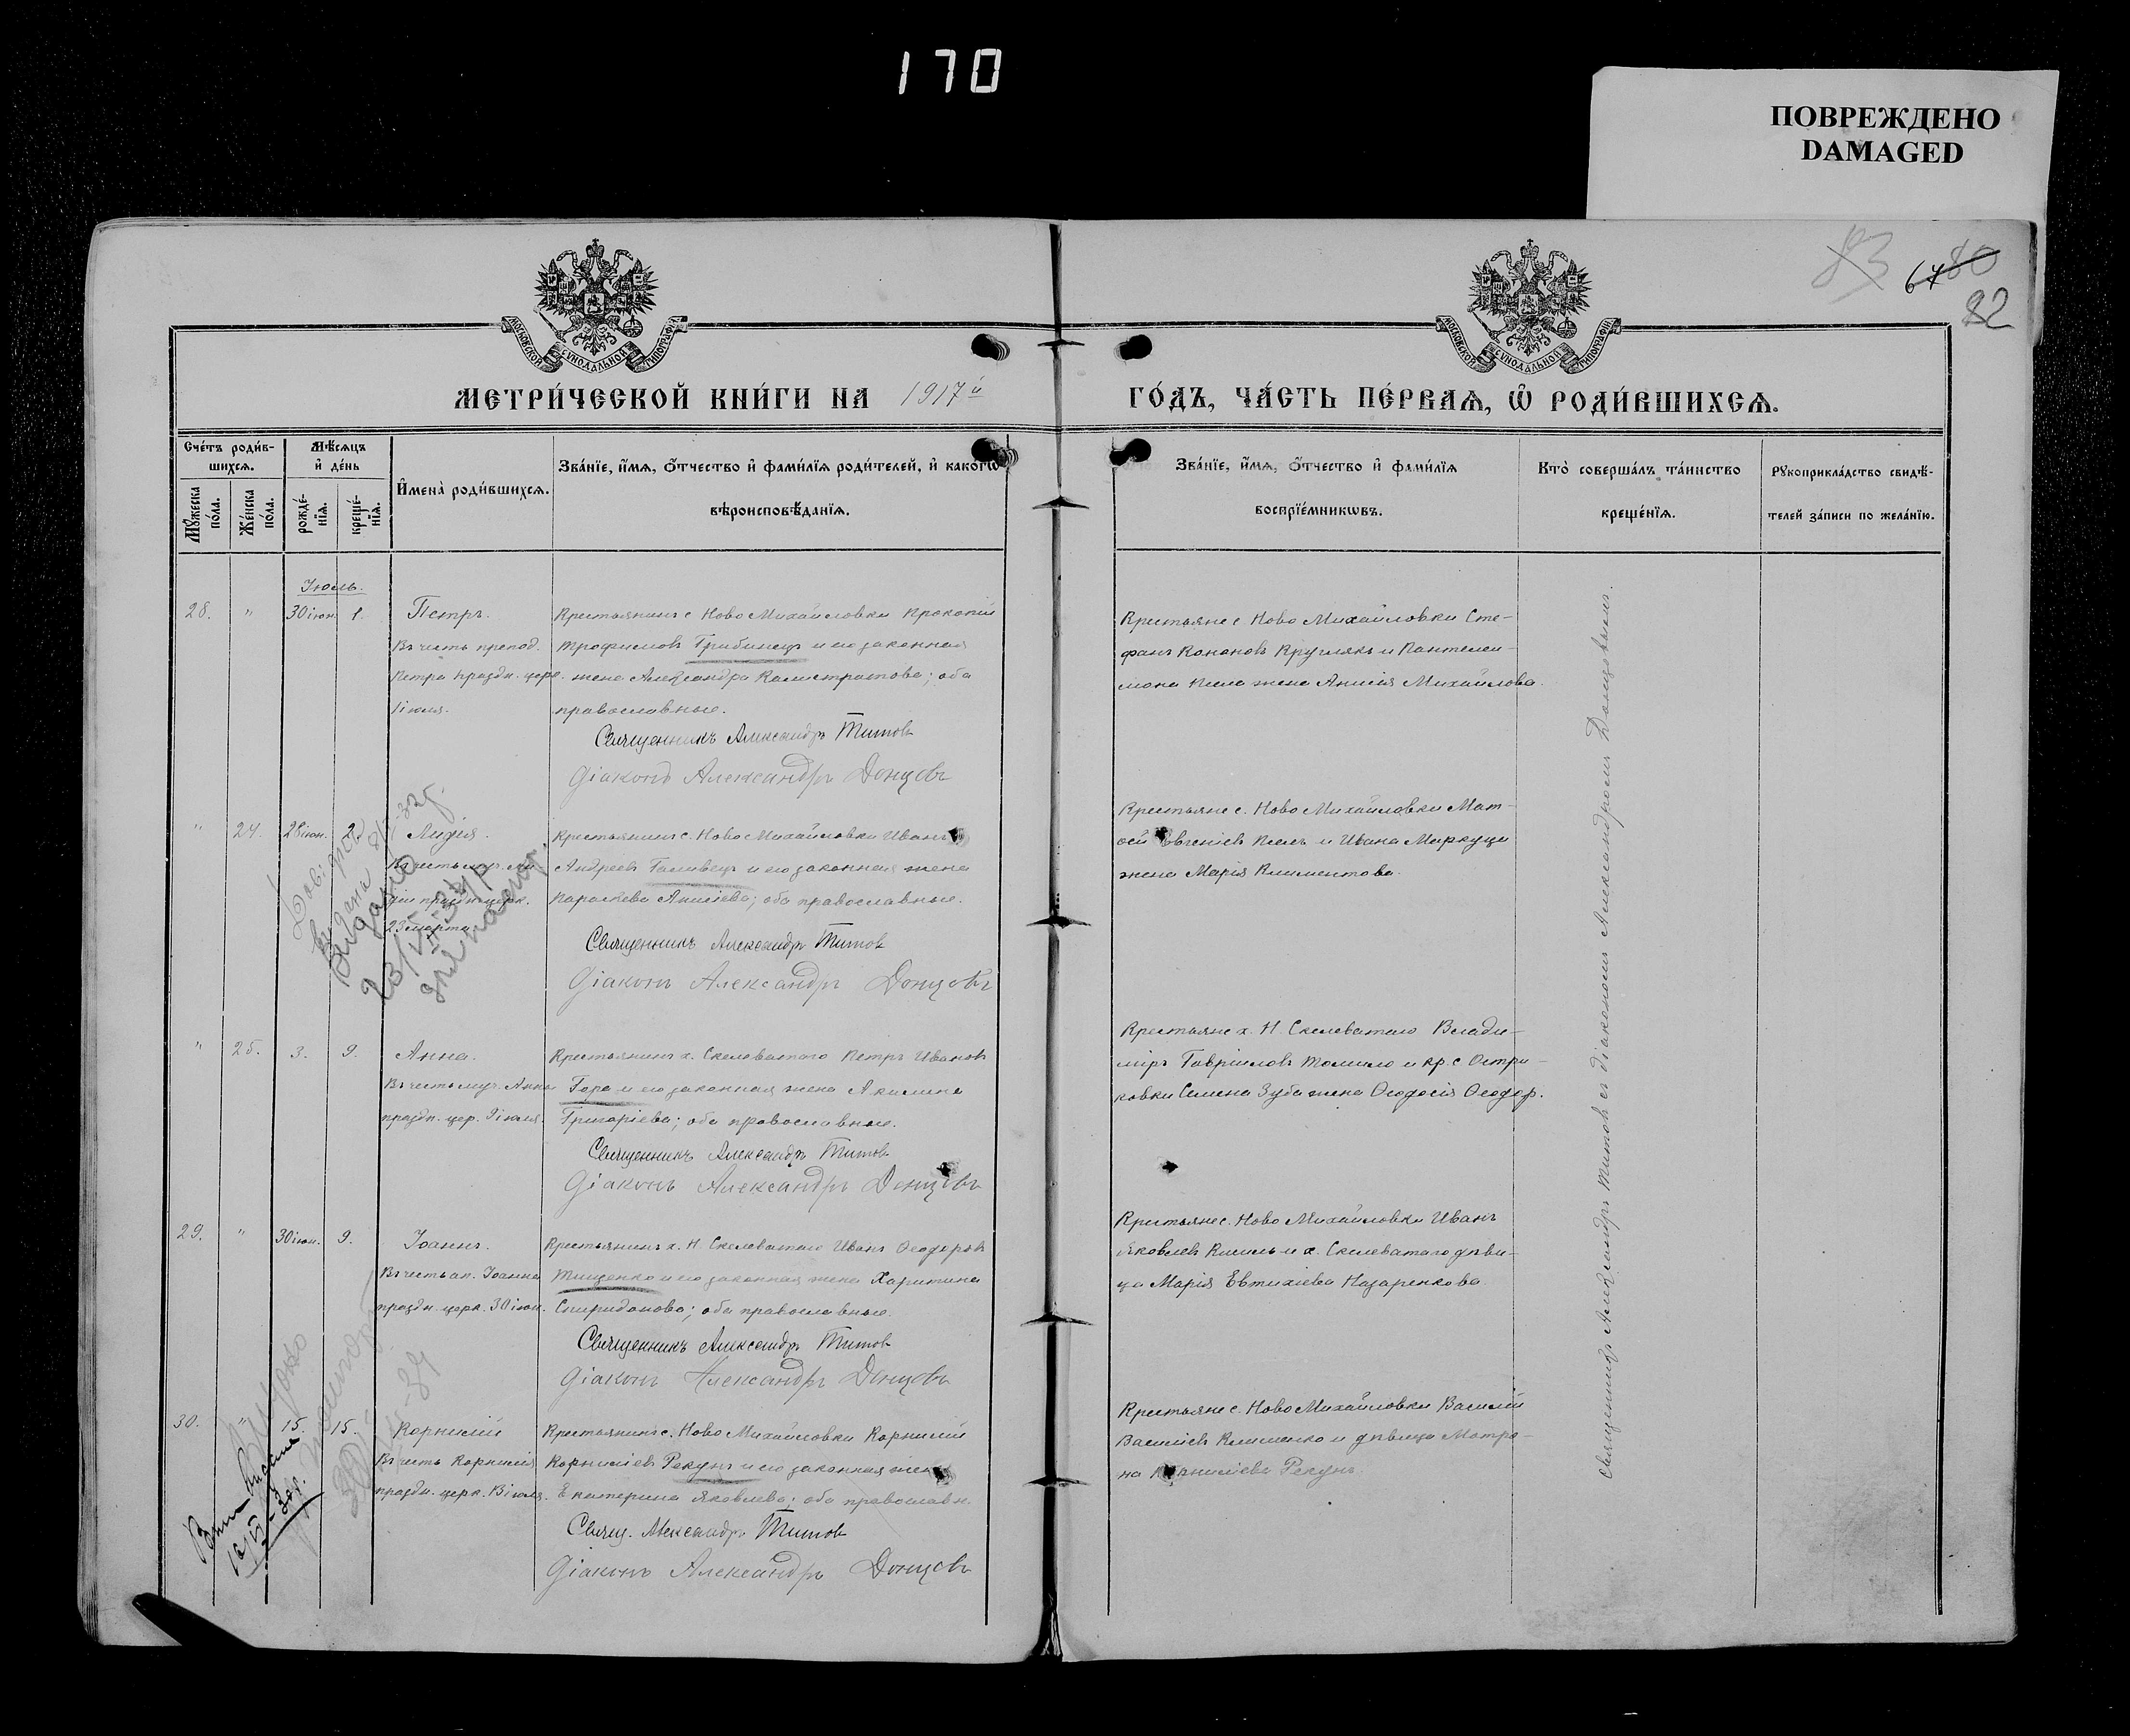 170
ПОВРЕЖДЕНО
DAMAGED
83 67 80
82
МОСКОВСКОЙ СУНОДАЛЬНОЙ ТИПОГРАФІИ
МОСКОВСКОЙ СУНОДАЛЬНОЙ ТИПОГРАФІИ
МЕТРИ́ЧЕСКОЙ КНИ́ГИ НА 1917й
ГО́ДЪ, ЧА́СТЬ ПЕ́РВАѦ, Ѽ РОДИ́ВШИХСѦ.
Сче́тъ роди́в-
шихсѧ.
Мꙋ́жеска по́ла.
Же́нска по́ла.
Мѣ́сѧцъ
и҆ де́нь
рожде́-
нїѧ.
креще́-
нїѧ.
И҆мена̀ роди́вшихсѧ.
Зва́нїе, и҆́мѧ, ѻ҆́тчество и҆ фами́лїѧ роди́телей, и҆ какогѡ
вѣроисповѣ́данїѧ.
Зва́нїе, и҆́мѧ, ѻ҆́тчество и҆ фами́лїѧ
воспрїе́мникѡвъ.
Кто̀ соверша́лъ та́инство
креще́нїѧ.
Рꙋкоприкла́дство свидѣ́-
телей за́писи по жела́нїю.
Іюль.
28. " 30 іюн. 1. Петръ.
Въ честь препод.
Петра праздн. церк.
1 іюля.
Крестьянинъ с Ново Михайловки Прокопій
Трофимовъ Грибинецъ и его законная
жена Александра Калистратова; оба
православные.
Священникъ Александръ Титовъ
Діаконъ Александръ Донцовъ
Крестьяне с Ново Михайловки Сте-
фанъ Кононовъ Круглякъ и Пантелеи-
мона жена Анисія Михайлова
" 24. 28 іюн. 2. Лидія.
Въ честь муч. Ли
діи праздн. церк.
23 марта
Крестьянинъ с. Ново Михайловки Иванъ
Андреевъ Галивецъ и его законная жена
Параскева Анисіева; оба православные.
Священникъ Александръ Титовъ
Діаконъ Александръ Донцовъ
Крестьяне с. Ново Михайловки Мат-
ѳей Евгеніевъ и Ивана
жена Марія Климентова.
Видано
23/VII 32 р
" 25. 3. 9. Анна.
Въ честь муч. Анны
праздн. цер. 9 іюля.
Крестьянинъ х. Скелеватаго Петръ Ивановъ
Гора и его законная жена Акилина
Григоріева; оба православные.
Священникъ Александръ Титовъ
Діаконъ Александръ Донцовъ
Крестьяне х. Н. Скелеватаго Влади-
міръ Гавріиловъ Томило и кр. с Остри-
ковки Семена Зуба жена Ѳеодосія Ѳеодор.
29. " 30 іюн. 9. Іоаннъ.
Въ честь ап. Іоанна
праздн. церк. 30 іюн.
Крестьянинъ х. Н. Скелеватаго Иванъ Ѳеодоровъ
Тищенко и его законная жена Харитина
Спиридонова; оба православные.
Священникъ Александръ Титовъ
Діаконъ Александръ Донцовъ
Крестьяне с. Ново Михайловки Иванъ
Яковлевъ Кисиль и х. Скелеватаго дѣви-
ца Марія Евтихіева Назаренкова
30. " 15. 15. Корнилій
Въ честь Корнилія
праздн. церк. іюля.
Крестьянинъ с. Ново Михайловки Корнилій
Корниліевъ Рекунъ и его законная жена
Екатерина Яковлева; оба православн.
Свящ. Александръ Титовъ
Діаконъ Александръ Донцовъ
Крестьяне с. Ново Михайловки Василій
Василіевъ Клименко и дѣвица Матро-
на Корниліева Рекунъ.
Священникъ Александръ Титовъ съ діакономъ Александромъ Донцовымъ.